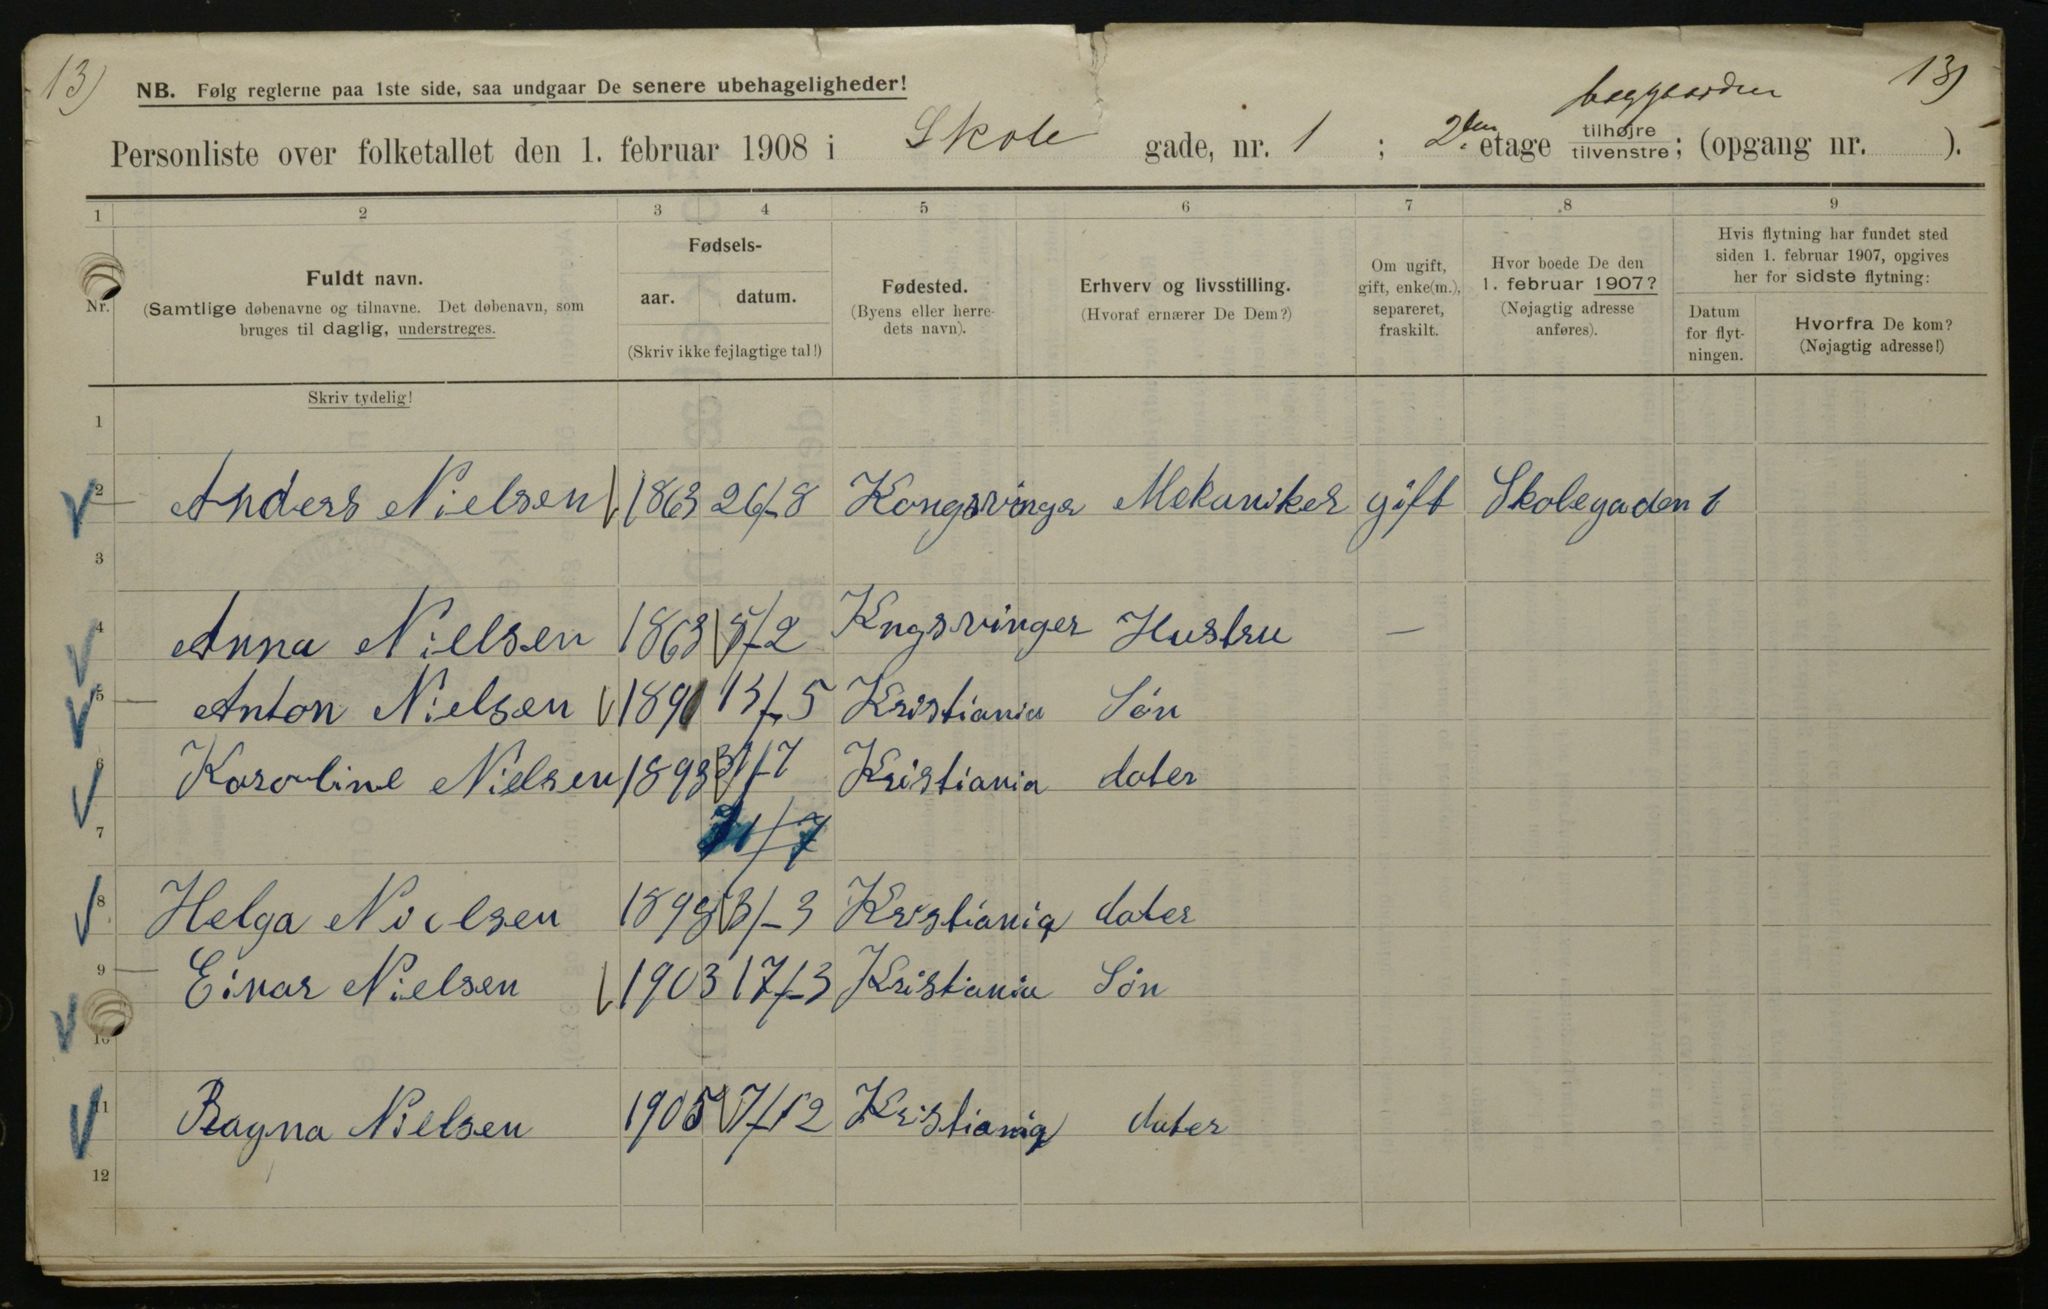 13)
NB. Følg reglerne paa 1ste side, saa undgaar De senere ubehageligheder!
baggaarden
13)
Personliste over folketallet den 1. februar 1908 i Skole gade, nr. 1 ; 2den etage tilhøjre tilvenstre; (opgang nr. ).
1 2 3 4 5 6 7 8 9
Nr.
Fuldt navn.
(Samtlige døbenavne og tilnavne. Det døbenavn, som
bruges til daglig, understreges.
Skriv tydelig!
Fødsels-
aar. datum.
(Skriv ikke fejlagtige tal!)
Fødested.
(Byens eller herre-
dets navn).
Erhverv og livsstilling.
(Hvoraf ernærer De Dem?)
Om ugift,
gift, enke(m.),
separeret,
fraskilt.
Hvor boede De den
1. februar 1907?
(Nøjagtig adresse
anføres).
Hvis flytning har fundet sted
siden 1. februar 1907, opgives
her for sidste flytning:
Datum
for flyt-
ningen.
Hvorfra De kom?
(Nøjagtig adresse!)
1
2 Anders Nielsen 1863 26/8 Kongsvinger Mekaniker gift Skolegaden 1
3
4 Anna Nielsen 1863 5/2 Kngsvinger Hustru —
5 Anton Nielsen 1891 13/5 Kristiania Søn
6 Karouline Nielsen 1893 31/7 Kristiania dater
7
8 Helga Nielsen 1898 3/3 Kristiania dater
9 Einar Nielsen 1903 17/3 Kristiania Søn
10
11 Ragna Nielsen 1905 7/12 Kristiania dater
12